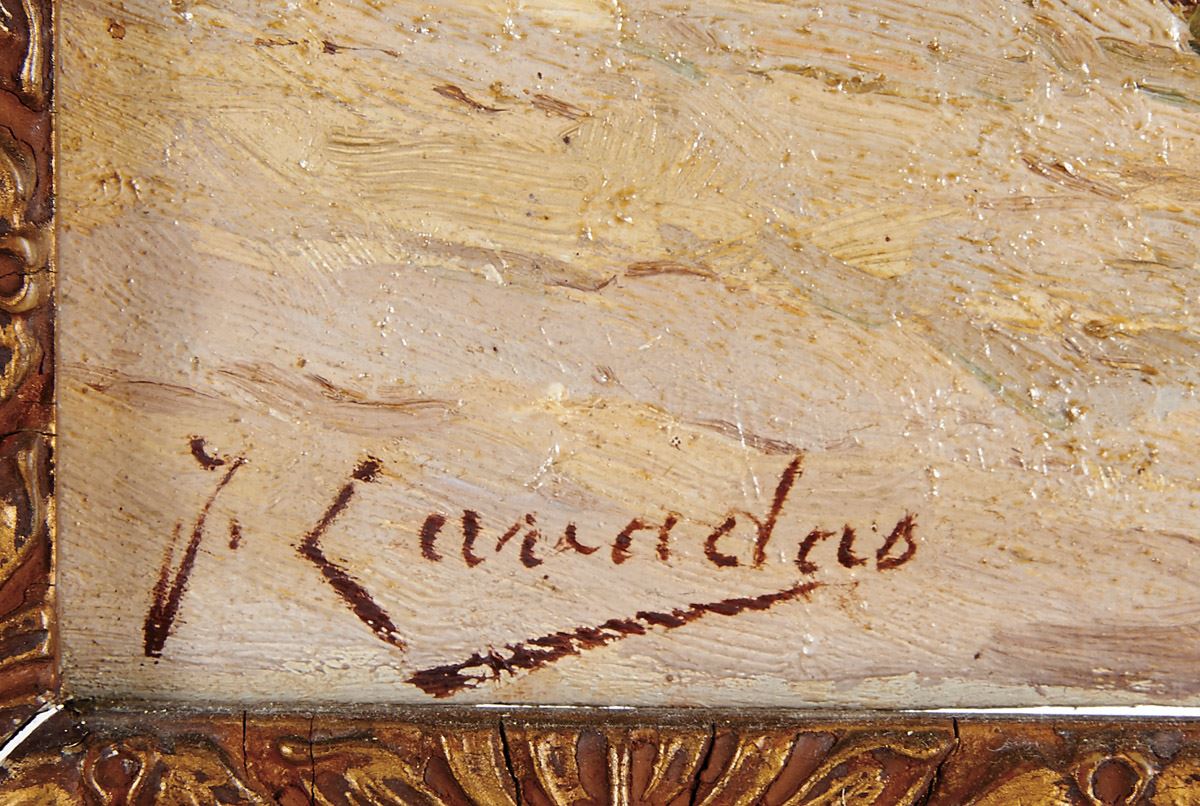 J. Canadas